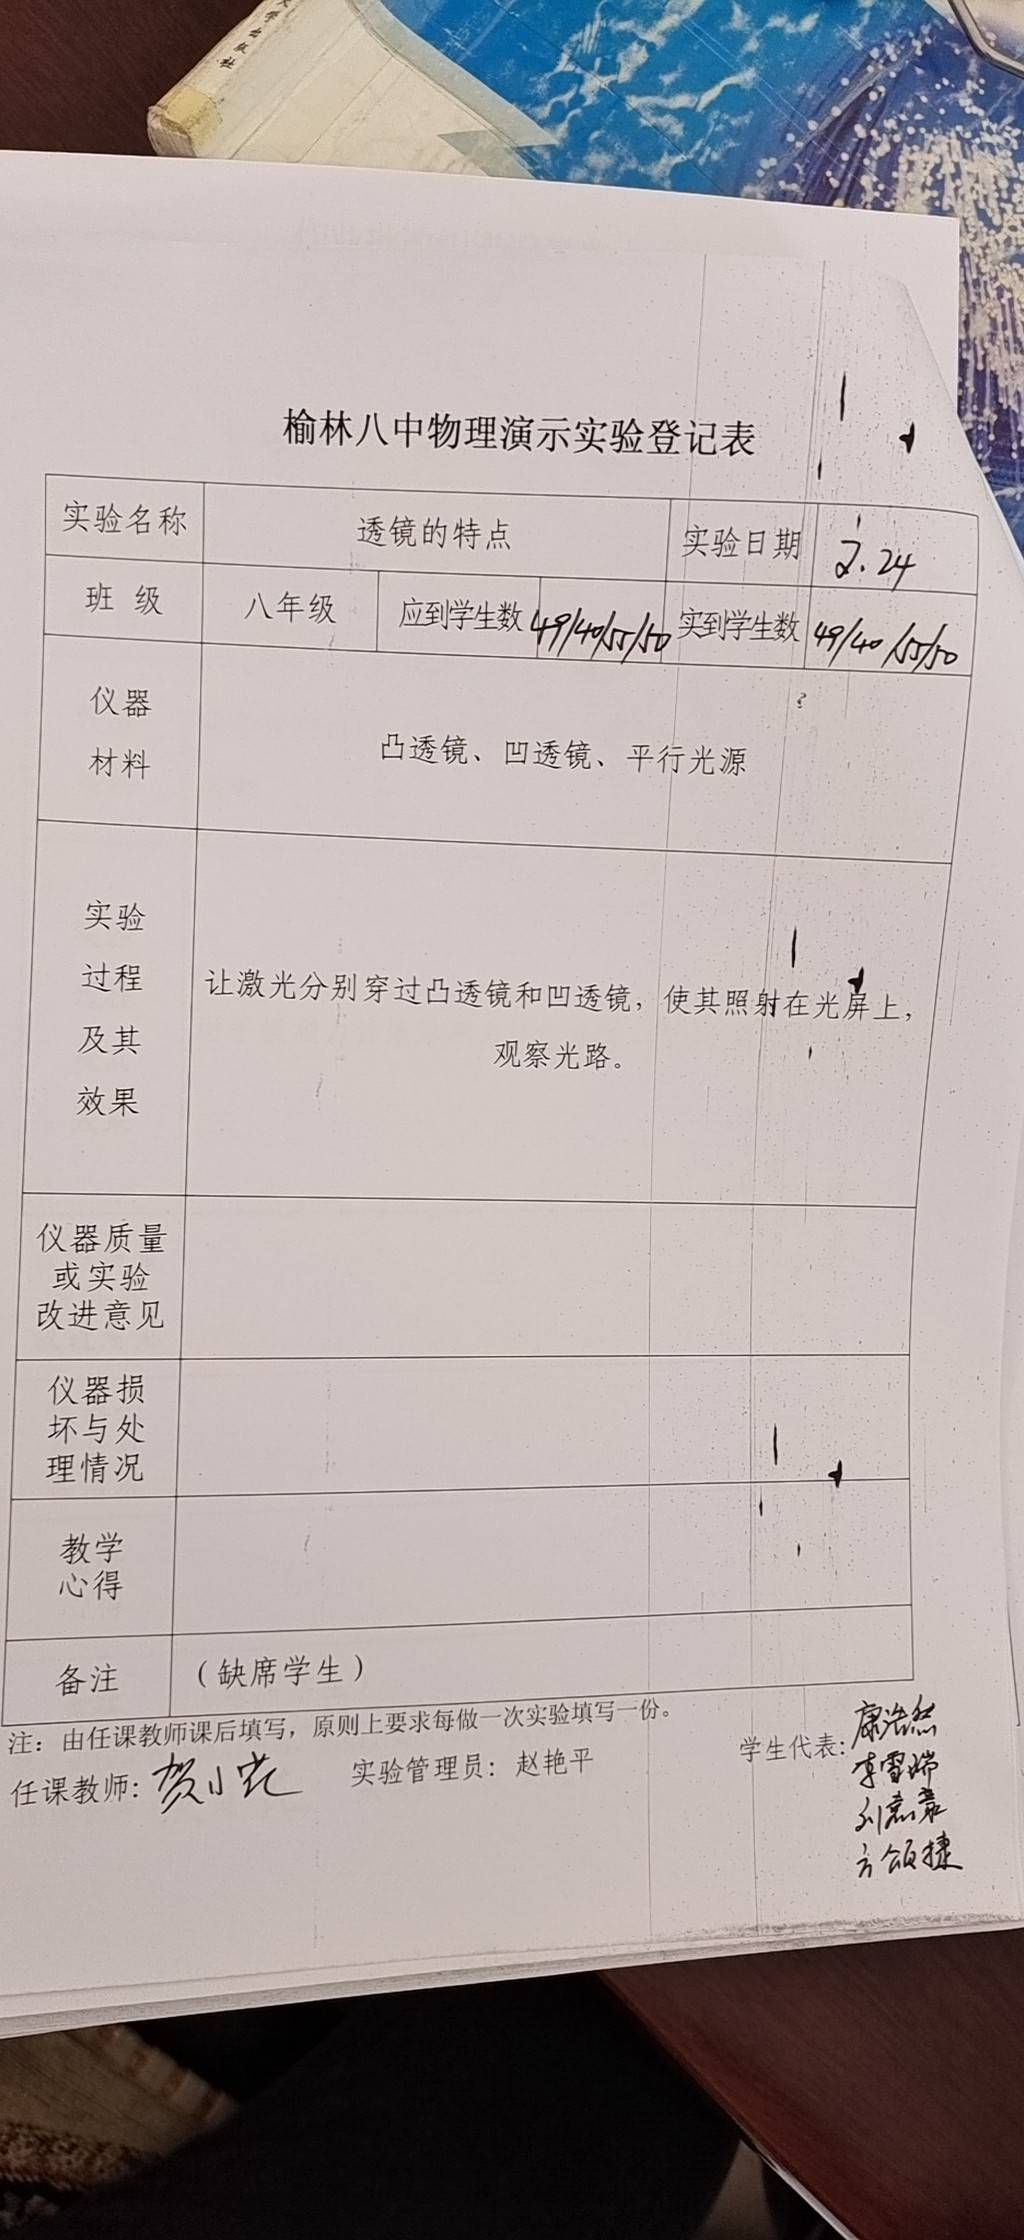 大学出版社
榆林八中物理演示实验登记表
实验名称 透镜的特点 实验日期 2.24
班 级 八年级 应到学生数 49/40/55/50 实到学生数 49/40/55/50
仪器
材料
凸透镜、凹透镜、平行光源
实验
过程
及其
效果
让激光分别穿过凸透镜和凹透镜，使其照射在光屏上，
观察光路。
仪器质量
或实验
改进意见
仪器损
坏与处
理情况
教学
心得
备注 （缺席学生）
注：由任课教师课后填写，原则上要求每做一次实验填写一份。
任课教师: 贺小花 实验管理员：赵艳平 学生代表: 康浩然
李雪瑞
方颂捷